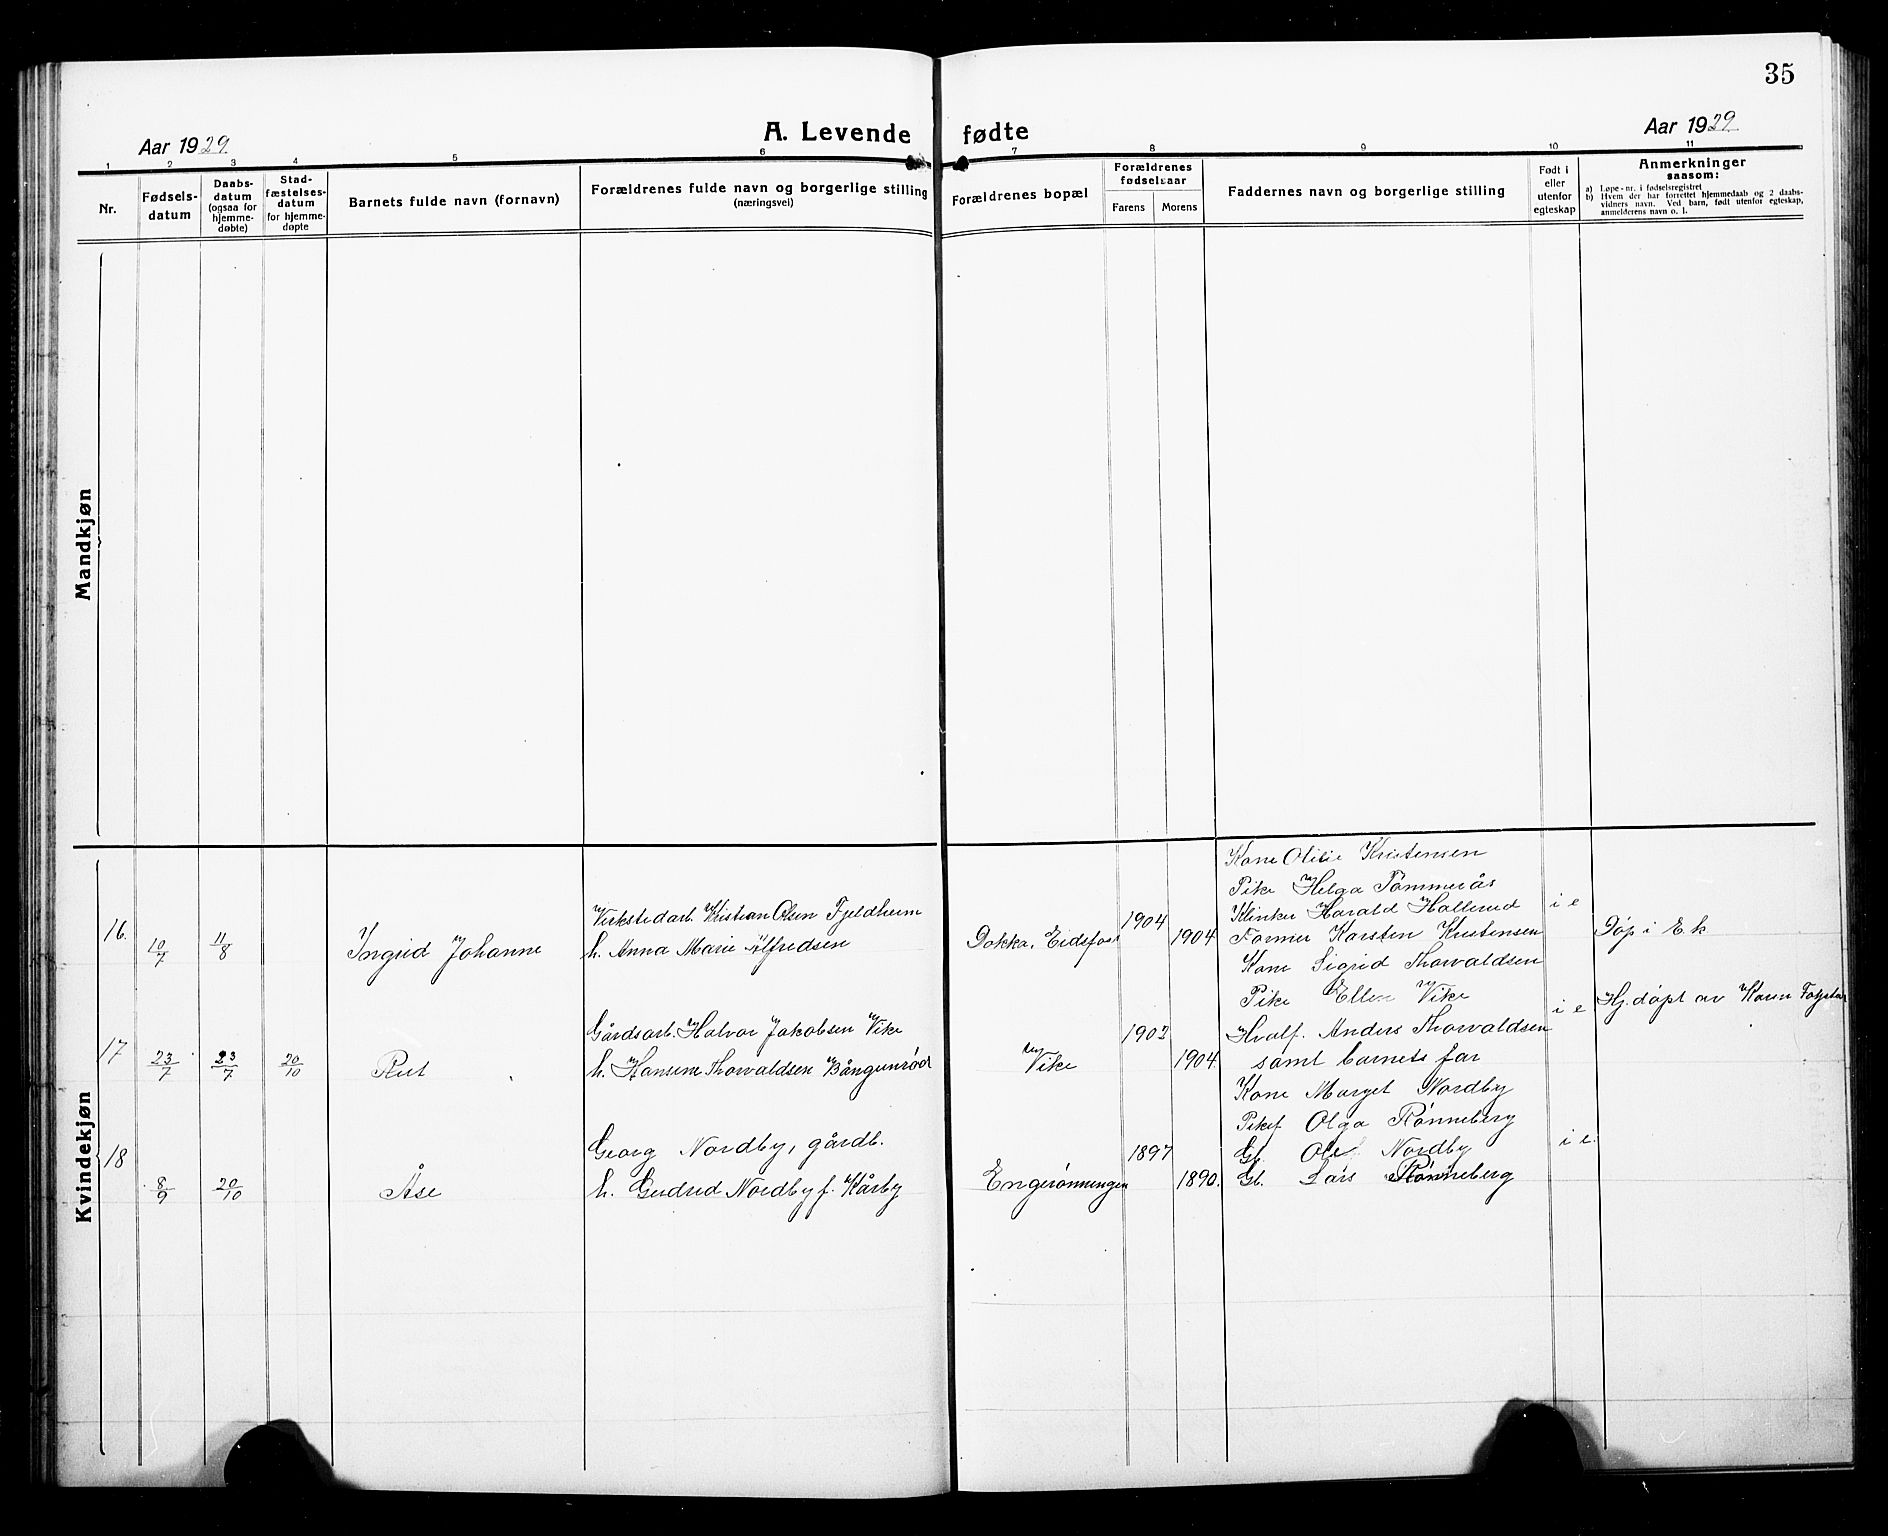 35
A. Levende fødte
Aar 1929
Aar 1929
1 2 3 4 5 6 7 8 9 10 11
Nr.
Fødsels-
datum
Daabs-
datum
(ogsaa for
hjemme-
døbte)
Stad-
fæstelses-
datum
for hjemme-
døpte
Barnets fulde navn (fornavn)
Forældrenes fulde navn og borgerlige stilling
(næringsvei)
Forældrenes bopæl
Forældrenes
fødselsaar
Farens
Morens
Faddernes navn og borgerlige stilling
Født i
eller
utenfor
egteskap
Anmerkninger
saasom:
a) Løpe-nr. i fødselsregistret
b) Hvem der har forrettet hjemmedaab og 2 daabs-
vidners navn. Ved barn, født utenfor egteskap,
anmelderens navn o. l.
Mandkjøn
Kvindekjøn
16.
10/7
11/8
Ingrid Johanne
Verkstedarb. Kristian Olsen Fjeldheim
h. Anna Marie Alfredsen
Dokka, Eidsfoss
1904
1904
Kone Kristensen
Pike Helga Tømmerås
Klinker Harald Hallerud
Former Karsten Kristensen
i e
Døp i E. k
17
23/7
23/7
20/10
Rut
Gårdsarb. Halvor Jakobsen Vike
h. Hansine Thorvaldsen
Vike
1903
1904
Kone Sigrid Thorvaldsen
Pike Ellen Vike
Hvalf. Anders Thorvaldsen
samt barnets far
i e
Hj.døpt av Karen
18
8/9
20/10
Åse
Georg Nordby, gårdb.
h. Gudrud Nordby f. Kårby
Engerønningen
1897
1890.
Kone Marget Nordby
Pike Olga Rønneberg
Gb. Ole Nordby
Gb. Lars Rønneberg
i e.